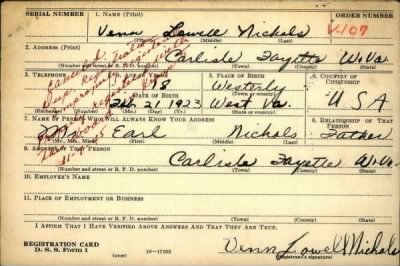 SERIAL NUMBER 1. NAME (Print) ORDER NUMBER
Venn Lowell Nichols V-107
(First) (Middle) (Last)
2. ADDRESS (Print)
Carlisle Fayette W.Va.
(Number and street or R. F. D. number) (Town) (County) (State)
3. TELEPHONE 4. AGE IN YEARS 5. PLACE OF BIRTH 6. COUNTRY OF CITIZENSHIP
18 Westerly
DATE OF BIRTH U S A
Feb. 21 1923 West Va.
(Mo.) (Day) (Yr.) (State or country)
7. NAME OF PERSON WHO WILL ALWAYS KNOW YOUR ADDRESS 8. RELATIONSHIP OF THAT PERSON
Mr. Earl Nichols Father
(Mr., Mrs., Miss) (First) (Middle) (Last)
9. ADDRESS OF THAT PERSON
Carlisle Fayette W.Va.
(Number and street or R. F. D. number) (Town) (County) (State)
10. EMPLOYER'S NAME
11. PLACE OF EMPLOYMENT OR BUSINESS
(Number and street or R. F. D. number) (Town) (County) (State)
I AFFIRM THAT I HAVE VERIFIED ABOVE ANSWERS AND THAT THEY ARE TRUE.
REGISTRATION CARD
D. S. S. Form 1 (over) 16-17105 Venn Lowell Nichols
(Registrant's signature)